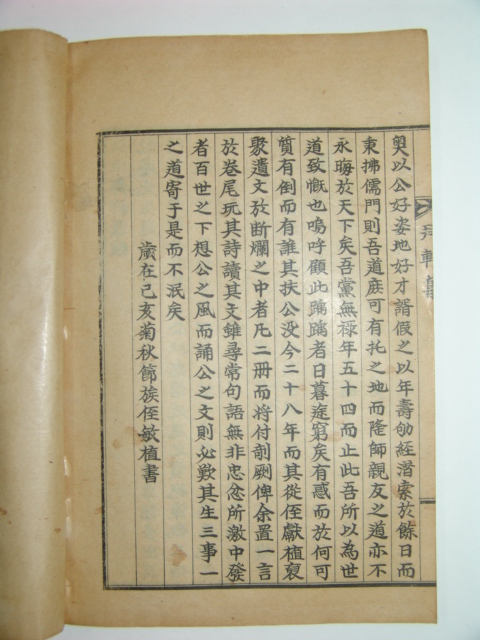 奧以公好姿地好才諝假之以年壽劬經潛索於餘日而
秉拂儒門則吾道庶可有托之地而隆師親友之道亦不
永晦於天下矣吾黨無祿年五十四而止此吾所以為世
道致慨也嗚呼顧此踽踽者日暮途窮矣有惑而於何可
質有倒而有誰其扶公没今二十八年而其從侄獻植裒
聚遺文於斷爛之中者凡二册而將付剞劂俾余置一言
於卷尾玩其詩讀其文雖尋常句語無非忠忿所激中發
者百世之下想公之風而誦公之文則必歎其生三事一
之道寄于是而不泯矣
歲在己亥菊秋節族侄敏植書